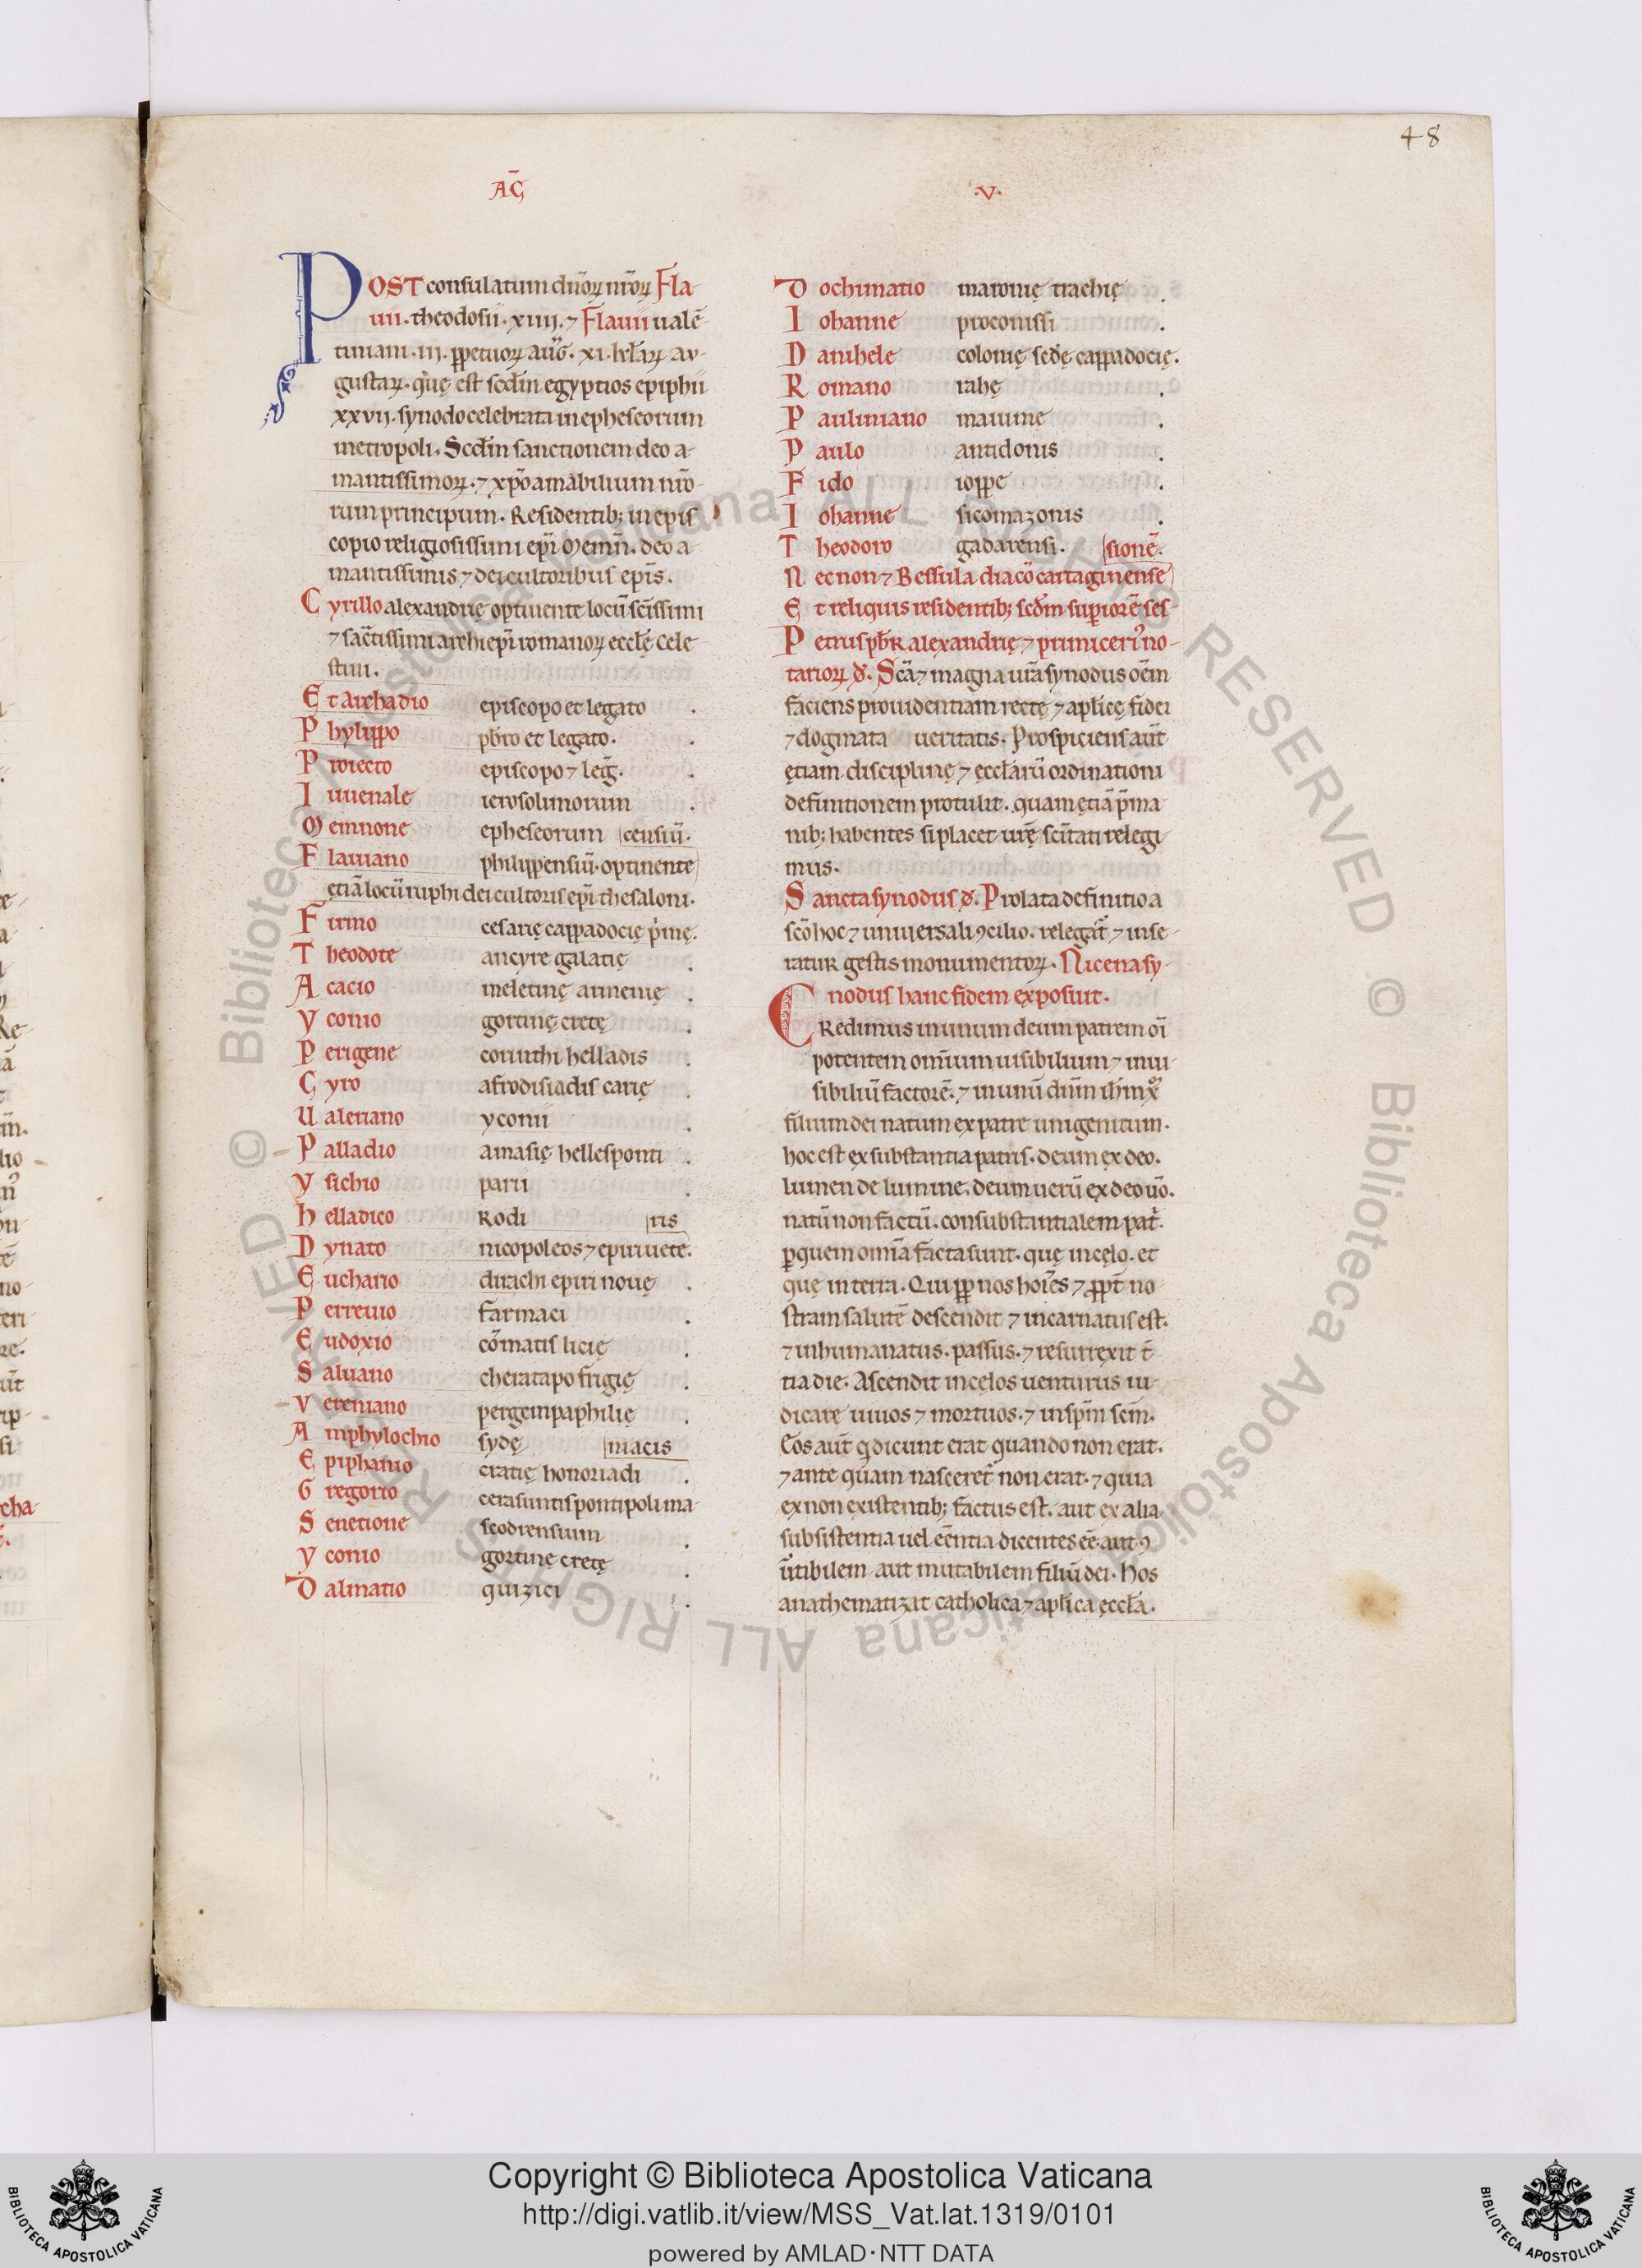 48
AC̄
·V·
POST consulatum dn̄oꝝ nr̄oꝝ Fla-
uii. theodosii. xiii. ⁊ Flauii ualē-
tiniani. iii. ꝑpetuoꝝ aug̃. xi. kl̄arꝝ au-
gustaꝝ. que est scd̄m egyptios epiphii
xxvii. synodo celebrata in epheseorum
metropoli. Scd̄m sanctionem deo a-
mantissimoꝝ. ⁊ xp̄o amabilium nr̄o-
rum principum. Residentib; in epis
copio religiosissimi ep̄i Memn̄. deo a-
mantissimis ⁊ dei cultoribus ep̄is.
Cyrillo alexandrie optinente locū sc̄issimi
⁊ sāctissimi archiep̄i romanoꝝ eccl̄ę Cele-
stini.
Et archadio episcopo et legato .
Phylippo pb̄ro et legato. .
Proiecto episcopo ⁊ leg̃. .
Iuuenale ierosolimorum .
Memnone epheseorum censiū.
Flauiano philippensiū. optinente
ętiā locū ruphi dei cultoris ep̄i thesaloni.
Firmo cesarię cappadocię pͥmę.
Theodote ancyre galatię .
Acacio meletinę armenię .
Yconio gortinę cretę .
Perigene corinthi helladis .
Cyro afrodisiadis carię .
Ualeriano yconii .
Palladio amasię hellesponti .
Ysichio parii .
Helladico Rodi ris
Dynato nicopoleos ⁊ epiri uete.
Euchario dirachi epiri nouę .
Perreuio farmaci .
Eudoxio cōmatis licię .
Saluano cheratapo frigię .
Vereniano pergem paphilię .
Amphylochio sydę niacis
Epiphanio cratię honoriadi .
Gregorio cerasuntis ponti polima-
Senetione scodrensium .
Yconio gortinę cretę .
Dalmatio quizici .
Dochimatio maronię trachię .
Iohanne proconissi .
Danihele colonię sedę cappadocię.
Romano rahę .
Pauliniano maiumę .
Paulo antidonis .
Fido ioppe .
Iohanne sicomazonis .
Theodoro gadarensi. sionē.
Nec non ⁊ Bessula diacō cartaginense
Et reliquis residentib; scd̄m superiorē ses-
Petrus pb̄r alexandrię ⁊ primiceri᷒ no-
tarioꝝ d̄. Sc̄a ⁊ magna ur̄a synodus om̄em
faciens prouidentiam rectę ⁊ apl̄icę fidei
⁊ dogmata ueritatis. Prospiciens aūt
ętiam disciplinę ⁊ ęccl̄arū ordinationi
definitionem protulit. quam ętiā pͥma
nib; habentes si placet ur̄ę sc̄itati relegi-
mus.
Sancta synodus d̄. Prolata definitio a
sc̄o hoc ⁊ uniuersali ꝯcilio. relegat̃ ⁊ inse-
ratur gestis monumentoꝝ. Nicena sy-
nodus hanc fidem exposuit.
CRedimus in unum deum patrem om̄i
potentem omnium uisibilium ⁊ inui-
sibiliū factorē. ⁊ in unū dn̄m ih̄m xp̄m
filium dei natum ex patre unigenitum.
hoc est ex substantia patris. deum ex deo.
lumen de lumine. deum uerū ex deo uō.
natū non factū. consubstantialem pat̃.
ꝑ quem om̄ia facta sunt. quę in cęlo. et
quę in terra. Qui ꝓp nos hoīes ⁊ ꝓpt̄ no-
stram salutē descendit ⁊ incarnatus est.
⁊ inhumanatus. passus. ⁊ resurrexit t̄-
tia die. Ascendit in cęlos uenturus iu-
dicare uiuos ⁊ mortuos. ⁊ in sp̄m sc̄m.
Eos aūt qͥ dicunt erat quando non erat.
⁊ ante quam nasceret̃ non erat. ⁊ quia
ex non existentib; factus est. aut ex alia
subsistentia uel ēentia dicentes ēe. aut ꝯ
ūtibilem aut mutabilem filiū dei. Hos
anathematizat catholica ⁊ apl̄ica ęccl̄a.
Copyright © Biblioteca Apostolica Vaticana
http://digi.vatlib.it/view/MSS_Vat.lat.1319/0101
powered by AMLAD·NTT DATA
BIBLIOTECA APOSTOLICA VATICANA
BIBLIOTECA APOSTOLICA VATICANA
© Biblioteca Apostolica Vaticana ALL RIGHTS RESERVED © Biblioteca Apostolica Vaticana ALL RIGHTS RESERVED